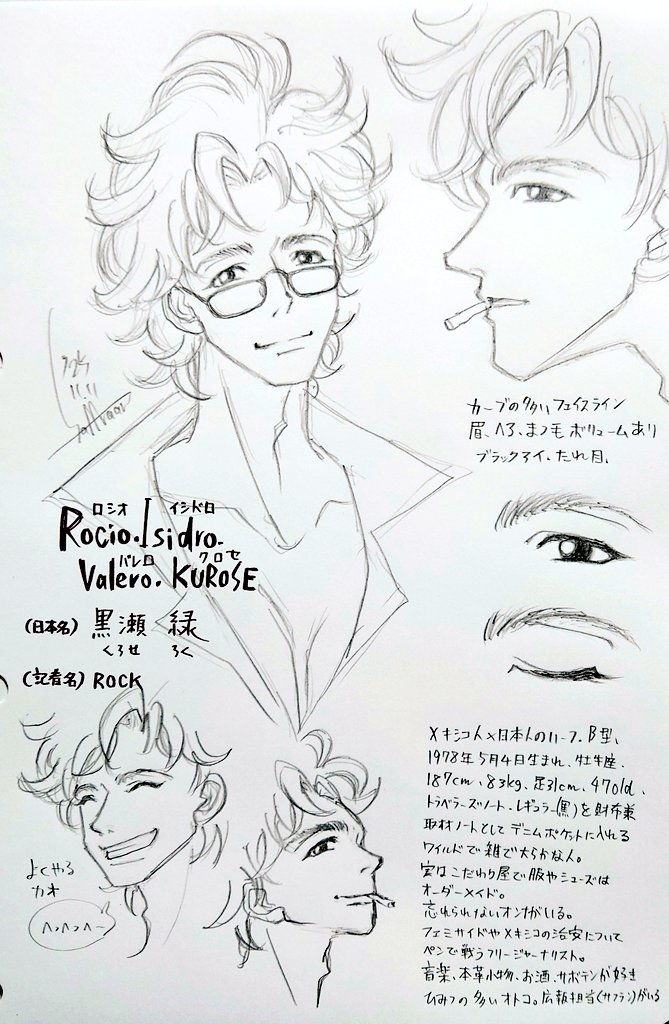 カーブの多いフェイスライン
眉、ヘア、まつ毛ボリュームあり
ブラックアイ、たれ目、
2025
11.11
Saffraan
ロシオ イシドロ
Rocio.Isidro.
バレロ クロセ
Valero.KUROSE
(日本名) 黒瀬 緑
くろせ ろく
(記者名) ROCK
よくやる
カオ
へっへっへー
メキシコ人×日本人のハーフ。B型、
1978年5月4日生まれ、牡牛座、
187cm、83kg、足31cm、47old、
トラベラーズノート、レギュラー(黒)を財布兼
取材ノートとしてデニムポケットに入れる
ワイルドで雑で大らかな人。
実はこだわり屋で服やシューズは
オーダーメイド。
忘れられないオンナがいる。
フェミサイドやメキシコの治安について
ペンで戦うフリージャーナリスト。
音楽、本革小物、お酒、サボテンが好き
ひみつの多いオトコ。広報担当(サフラン)がいる